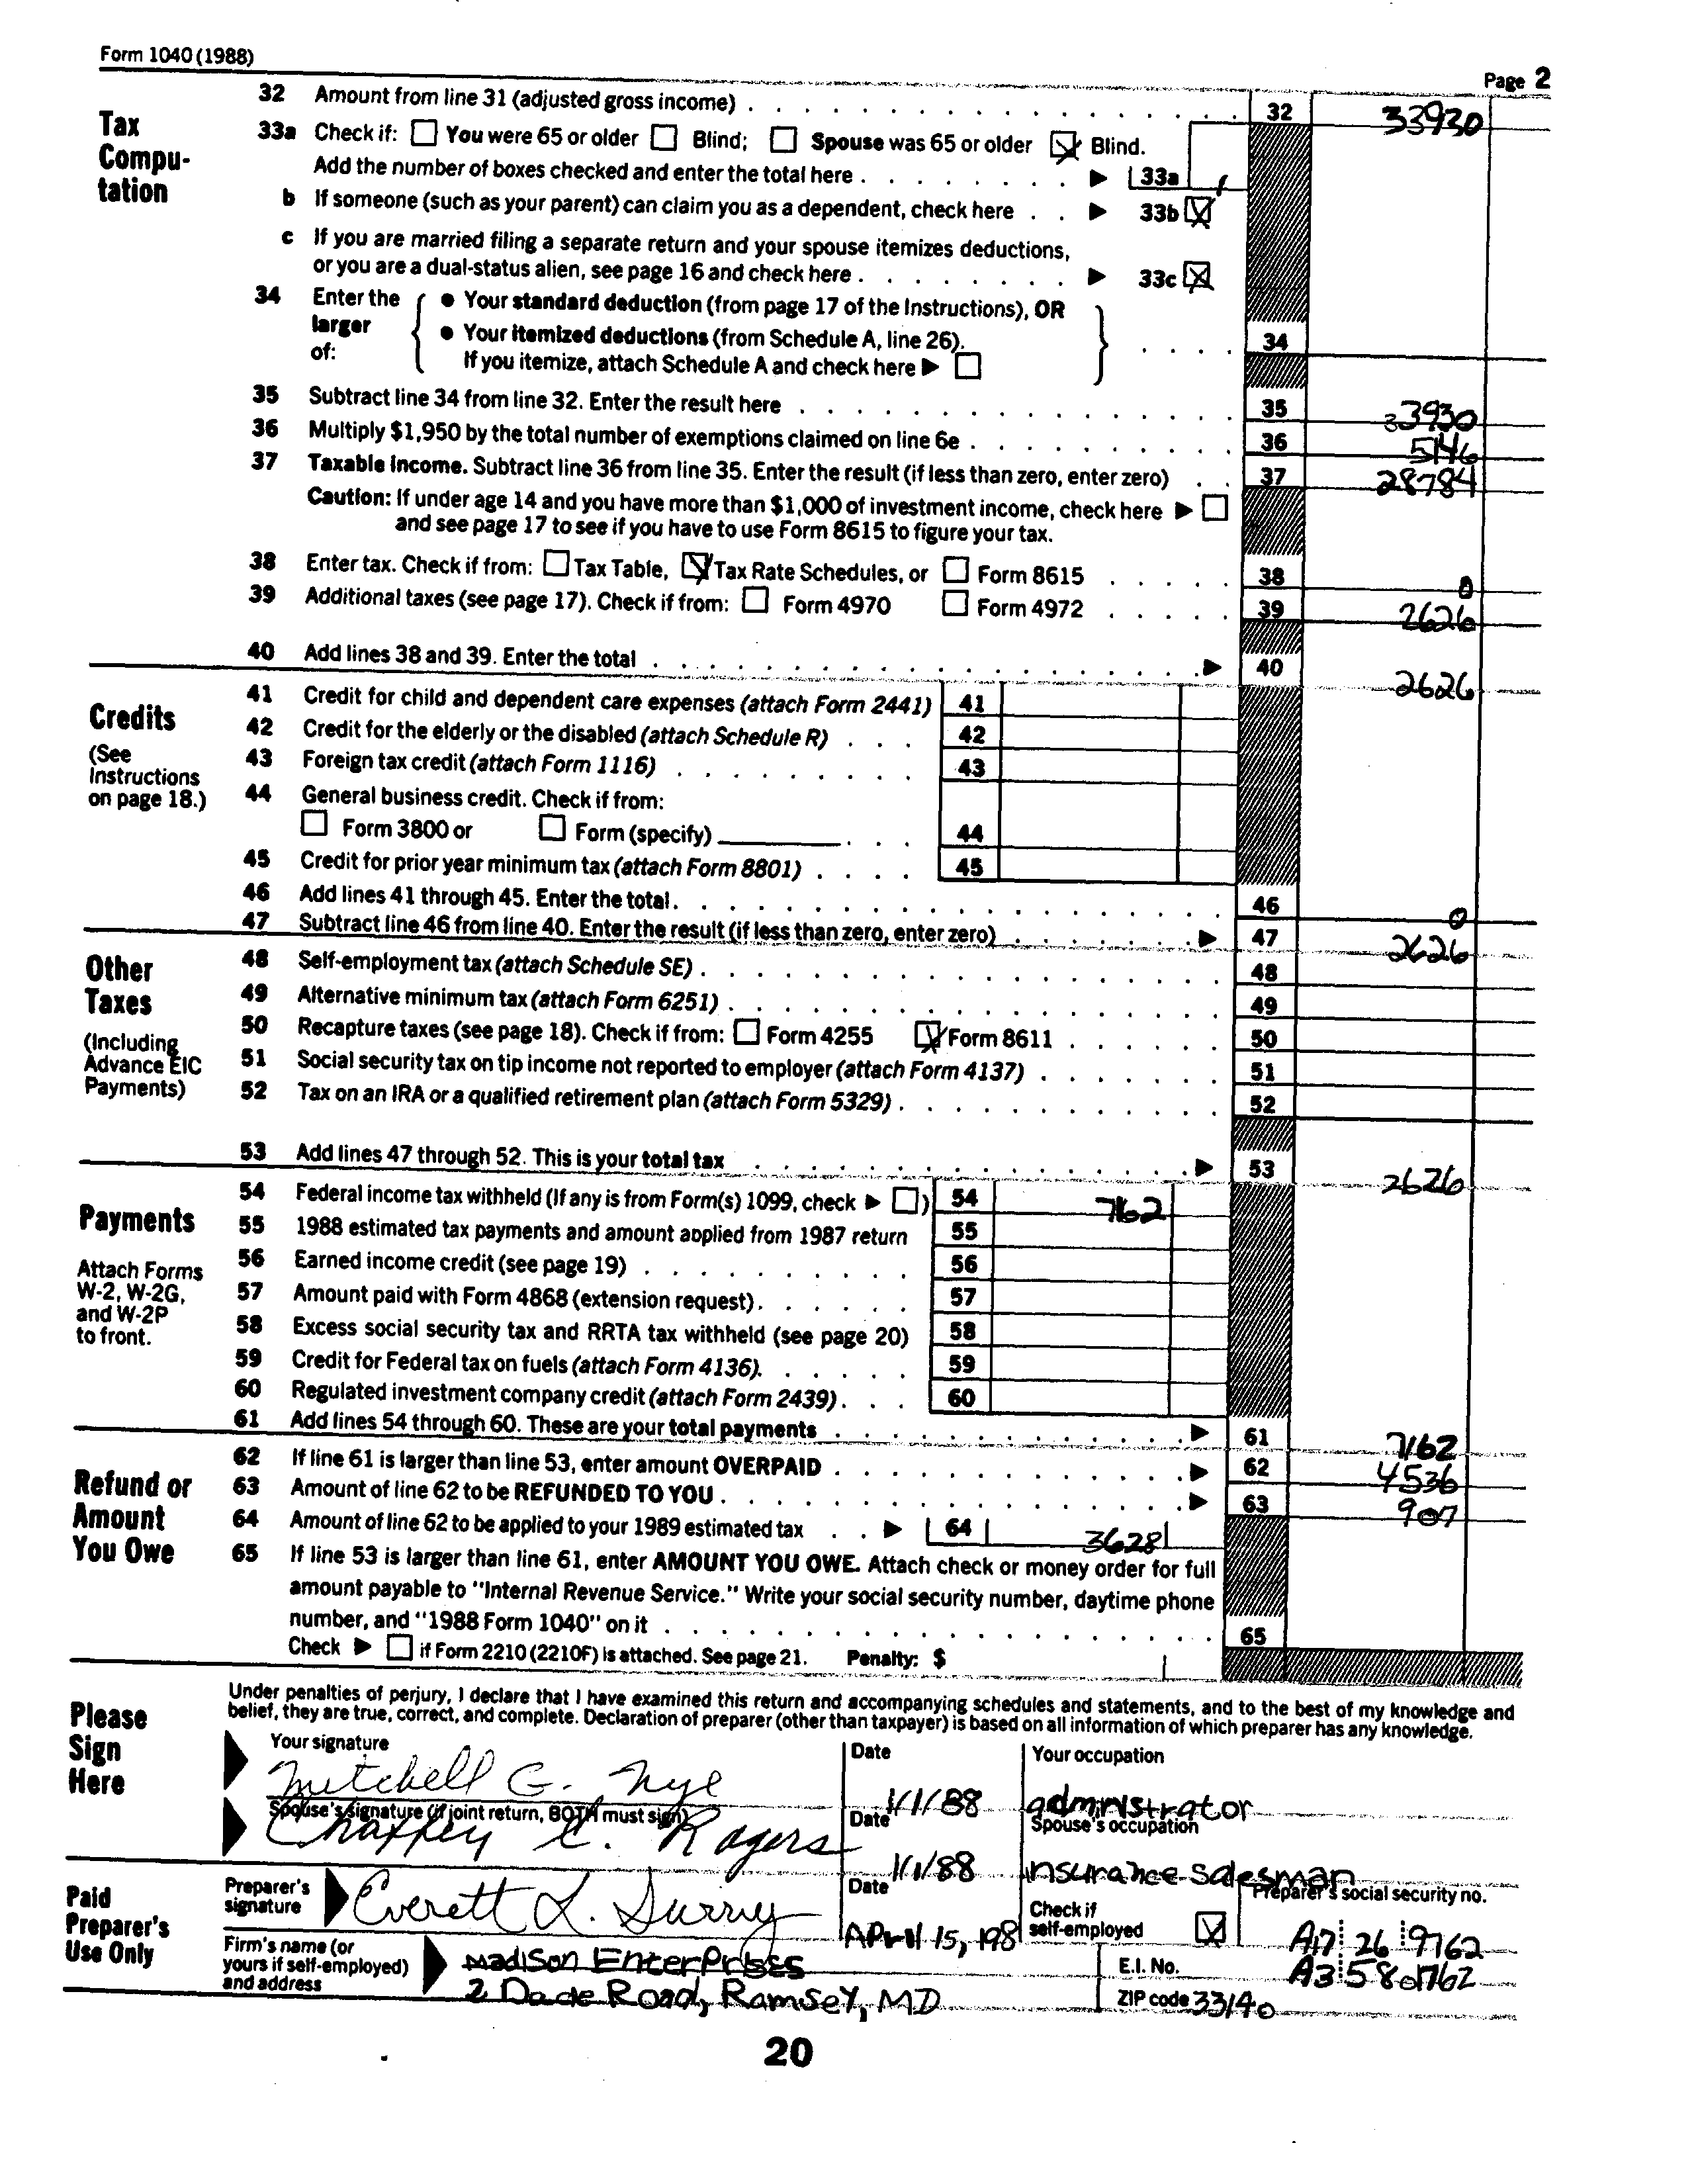 Form 1040 (1988)
Page 2
Tax Compu-tation
32 Amount from line 31 (adjusted gross income) . . . . 32 33930
33a Check if: You were 65 or older Blind; Spouse was 65 or older Blind.
Add the number of boxes checked and enter the total here . . . . 33a 1
b If someone (such as your parent) can claim you as a dependent, check here . . 33b
c If you are married filing a separate return and your spouse itemizes deductions,
or you are a dual-status alien, see page 16 and check here . . . . 33c
34 Enter the larger of:
• Your standard deduction (from page 17 of the Instructions), OR
• Your itemized deductions (from Schedule A, line 26).
If you itemize, attach Schedule A and check here . . . . 34
35 Subtract line 34 from line 32. Enter the result here . . . . 35 33930
36 Multiply $1,950 by the total number of exemptions claimed on line 6e . . . . 36 5146
37 Taxable income. Subtract line 36 from line 35. Enter the result (if less than zero, enter zero) . . 37 28784
Caution: If under age 14 and you have more than $1,000 of investment income, check here
and see page 17 to see if you have to use Form 8615 to figure your tax.
38 Enter tax. Check if from: Tax Table, Tax Rate Schedules, or Form 8615 . . . . 38 0
39 Additional taxes (see page 17). Check if from: Form 4970 Form 4972 . . . . 39 2626
40 Add lines 38 and 39. Enter the total . . . . 40 2626
Credits
(See Instructions on page 18.)
41 Credit for child and dependent care expenses (attach Form 2441) 41
42 Credit for the elderly or the disabled (attach Schedule R) . . . 42
43 Foreign tax credit (attach Form 1116) . . . . 43
44 General business credit. Check if from:
Form 3800 or Form (specify) . . . 44
45 Credit for prior year minimum tax (attach Form 8801) . . . . 45
46 Add lines 41 through 45. Enter the total . . . . 46 0
47 Subtract line 46 from line 40. Enter the result (if less than zero, enter zero) . . . . 47 2626
Other Taxes
(Including Advance EIC Payments)
48 Self-employment tax (attach Schedule SE) . . . . 48
49 Alternative minimum tax (attach Form 6251) . . . . 49
50 Recapture taxes (see page 18). Check if from: Form 4255 Form 8611 . . . . 50
51 Social security tax on tip income not reported to employer (attach Form 4137) . . . . 51
52 Tax on an IRA or a qualified retirement plan (attach Form 5329) . . . . 52
53 Add lines 47 through 52. This is your total tax . . . . 53 2626
Payments
Attach Forms W-2, W-2G, and W-2P to front.
54 Federal income tax withheld (If any is from Form(s) 1099, check ) 54 7162
55 1988 estimated tax payments and amount applied from 1987 return 55
56 Earned income credit (see page 19) . . . . 56
57 Amount paid with Form 4868 (extension request) . . . . 57
58 Excess social security tax and RRTA tax withheld (see page 20) 58
59 Credit for Federal tax on fuels (attach Form 4136) . . . . 59
60 Regulated investment company credit (attach Form 2439) . . . 60
61 Add lines 54 through 60. These are your total payments . . . . 61 7162
Refund or Amount You Owe
62 If line 61 is larger than line 53, enter amount OVERPAID . . . . 62 4536
63 Amount of line 62 to be REFUNDED TO YOU . . . . 63 907
64 Amount of line 62 to be applied to your 1989 estimated tax . . 64 3628
65 If line 53 is larger than line 61, enter AMOUNT YOU OWE. Attach check or money order for full
amount payable to "Internal Revenue Service." Write your social security number, daytime phone
number, and "1988 Form 1040" on it . . . . 65
Check if Form 2210 (2210F) is attached. See page 21. Penalty: $
Please Sign Here
Under penalties of perjury, I declare that I have examined this return and accompanying schedules and statements, and to the best of my knowledge and
belief, they are true, correct, and complete. Declaration of preparer (other than taxpayer) is based on all information of which preparer has any knowledge.
Your signature Date Your occupation
Mitchell G. Nye 1/1/88 administrator
Spouse's signature (if joint return, BOTH must sign) Date Spouse's occupation
Chaffey C. Rogers 1/1/88 insurance salesman
Paid Preparer's Use Only
Preparer's signature Date Check if self-employed Preparer's social security no.
Everett L. Surry April 15, 198 A17 26 9762
Firm's name (or yours if self-employed) and address
Madison Enterprises E.I. No. A3 5801762
2 Dade Road, Ramsey, MD ZIP code 33140
20